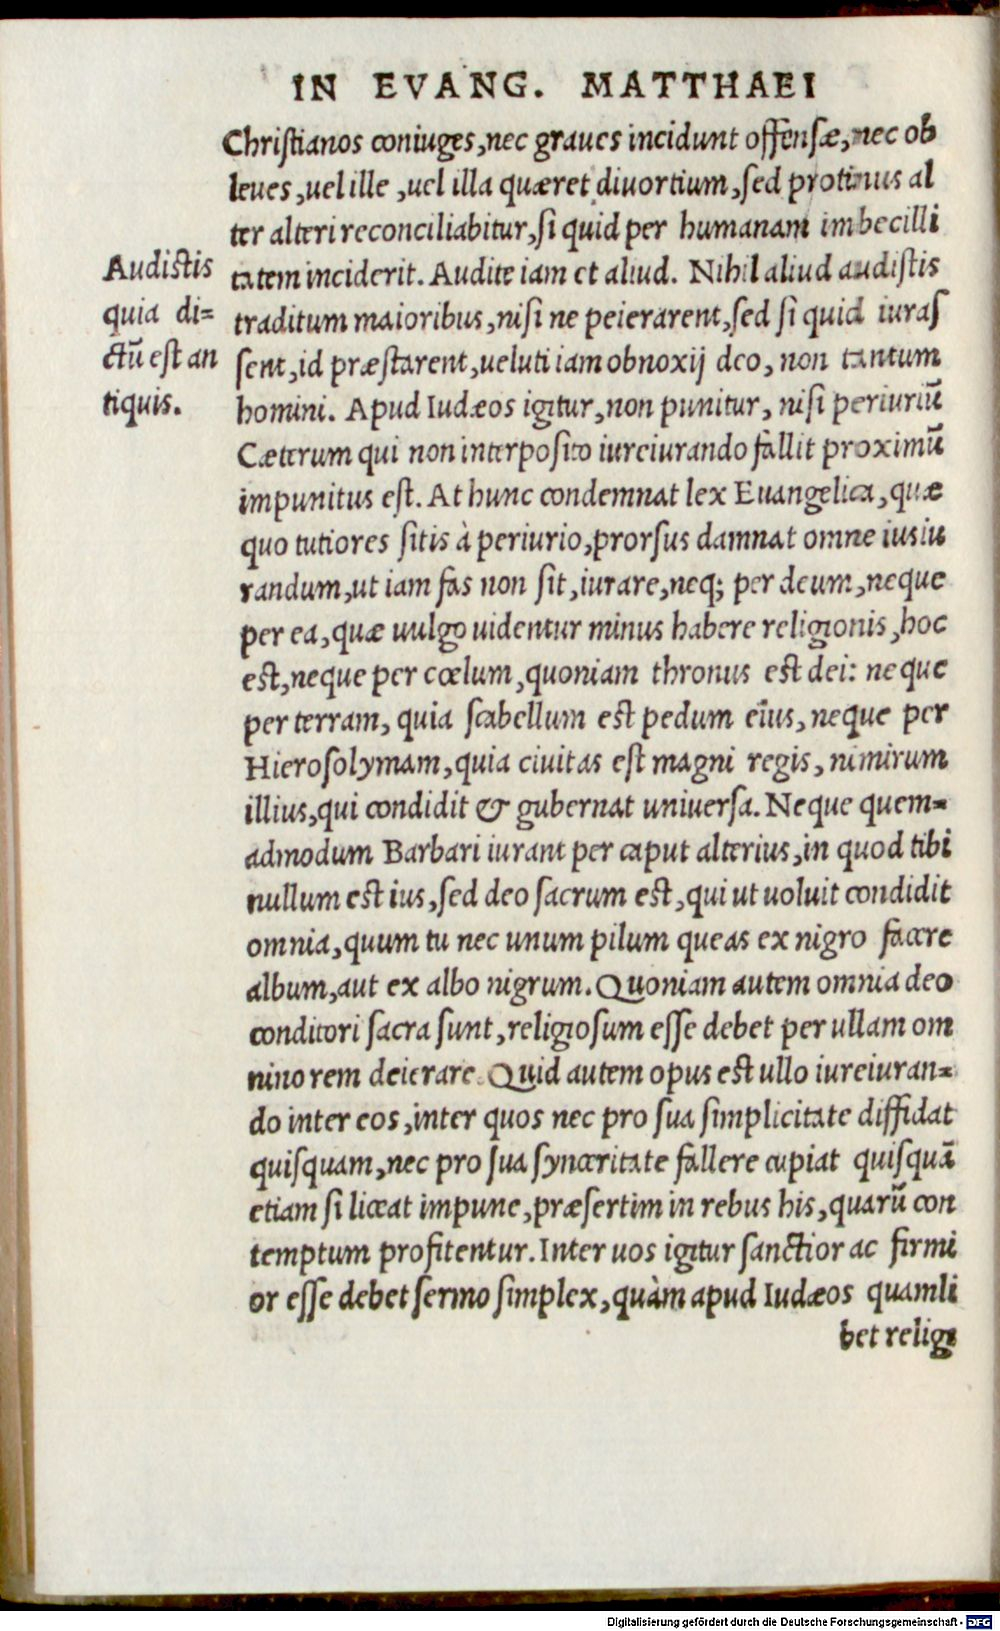 IN EVANG. MATTHAEI
Christianos coniuges, nec graues incidunt offensæ, nec ob
leues, uel ille, uel illa quæret diuortium, sed protinus al
ter alteri reconciliabitur, si quid per humanam imbecilli
tatem inciderit. Audite iam et aliud. Nihil aliud audistis
traditum maioribus, nisi ne peierarent, sed si quid iuras
sent, id præstarent, ueluti iam obnoxij deo, non tantum
homini. Apud Iudæos igitur, non punitur, nisi periuriũ
Cæterum qui non interposito iureiurando fallit proximũ
impunitus est. At hunc condemnat lex Euangelica, quæ
quo tutiores sitis à periurio, prorsus damnat omne iusiu
randum, ut iam fas non sit, iurare, neq; per deum, neque
per ea, quæ uulgo uidentur minus habere religionis, hoc
est, neque per cœlum, quoniam thronus est dei: neque
per terram, quia scabellum est pedum eius, neque per
Hierosolymam, quia ciuitas est magni regis, nimirum
illius, qui condidit & gubernat uniuersa. Neque quem=
admodum Barbari iurant per caput alterius, in quod tibi
nullum est ius, sed deo sacrum est, qui ut uoluit condidit
omnia, quum tu nec unum pilum queas ex nigro facere
album, aut ex albo nigrum. Quoniam autem omnia deo
conditori sacra sunt, religiosum esse debet per ullam om
nino rem deierare. Quid autem opus est ullo iureiuran=
do inter eos, inter quos nec pro sua simplicitate diffidat
quisquam, nec pro sua synceritate fallere cupiat quisquã
etiam si liceat impune, præsertim in rebus his, quarũ con
temptum profitentur. Inter uos igitur sanctior ac firmi
or esse debet sermo simplex, quàm apud Iudæos quamli
bet religi
Audistis
quia di=
ctũ est an
tiquis.
Digitalisierung gefördert durch die Deutsche Forschungsgemeinschaft - DFG